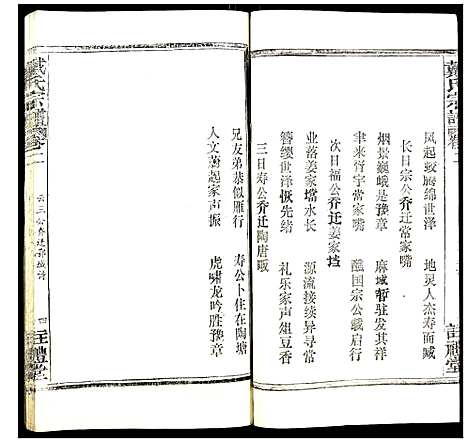 戴氏宗譜 卷二
凤起蛟腾绵世泽 地灵人杰寿而臧
长日宗公乔迁常家嘴
烟景巍峨是豫章 麻城暂驻发其祥
聿来胥宇常家嘴 醮国宗公载启行
次日福公乔迁姜家垱
业落姜家壋水长 源流接续异寻常
簪缨世泽恢先绪 礼乐家声俎豆香
三日寿公乔迁陶唐畈
兄友弟恭似雁行 寿公卜住在陶塘
人文蔚起家声振 虎啸龙吟胜豫章
戴氏宗譜 卷二
四
註禮堂